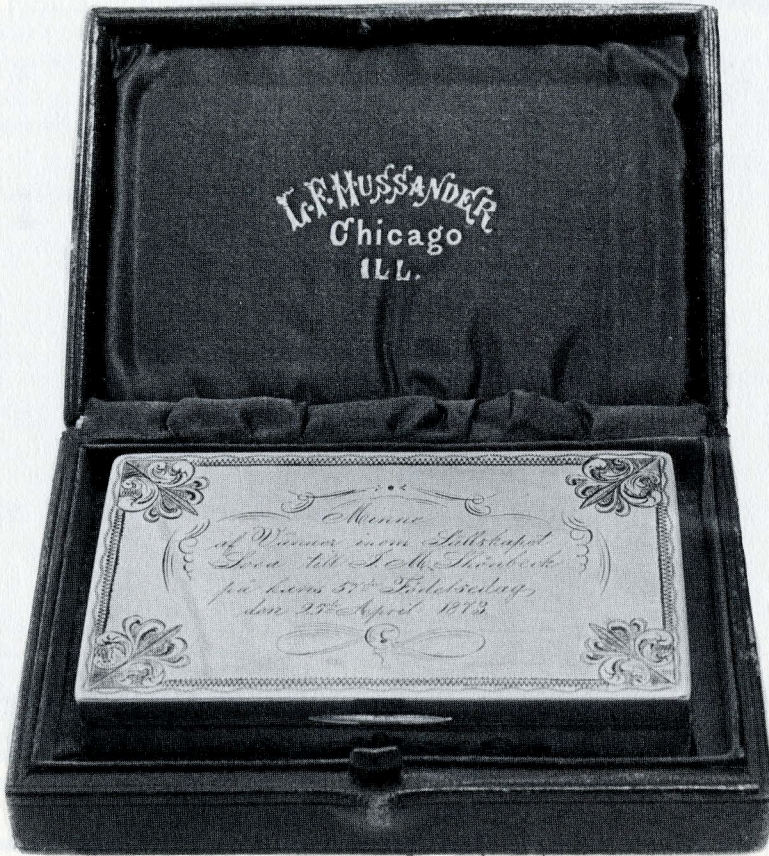 L. F. HUSSANDER
Chicago
ILL.
Minne
af Vänner inom Sällskapet
Svea till J. M. Schönbeck
på hans 57de Födelsedag,
den 25te April 1873